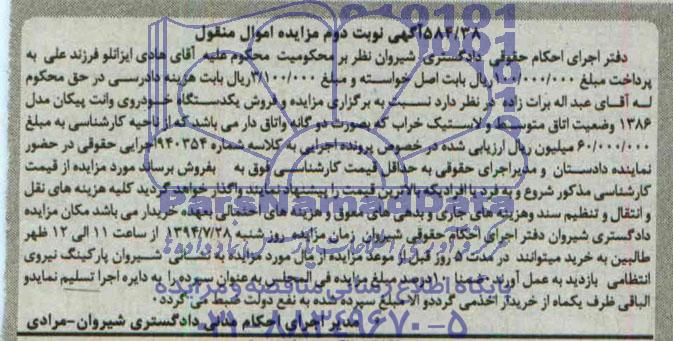 ۵۸۴/۳۸آگهی نوبت دوم مزایده اموال منقول
دفتر اجرای احکام حقوقی دادگستری شیروان نظر بر محکومیت محکوم علیه آقای هادی ایزانلو فرزند علی به
پرداخت مبلغ ۱۰۰/۰۰۰/۰۰۰ریال بابت اصل خواسته و مبلغ ۳/۱۰۰/۰۰۰ریال بابت هزینه دادرسی در حق محکوم
له آقای عبد اله برات زاده در نظر دارد نسبت به برگزاری مزایده و فروش یکدستگاه خودروی وانت پیکان مدل
۱۳۸۶ وضعیت اتاق متوسط و لاستیک خراب که بصورت دو گانه واتاق دار می باشد که از ناحیه کارشناسی به مبلغ
۶۰/۰۰۰/۰۰۰ میلیون ریال ارزیابی شده در خصوص پرونده اجرایی به کلاسه شماره ۹۴۰۳۵۴اجرایی حقوقی در حضور
نماینده دادستان و مدیراجرای حقوقی به حداقل قیمت کارشناسی فوق به بفروش برساند مورد مزایده از قیمت
کارشناسی مذکور شروع و به فرد یا افرادیکه بالاترین قیمت را پیشنهاد نمایند واگذار خواهد گردید کلیه هزینه های نقل
و انتقال و تنظیم سند وهزینه های جاری و بدهی های معوق و هزینه های احتمالی بعهده خریدار می باشد مکان مزایده
دادگستری شیروان دفتر اجرای احکام حقوقی شیروان زمان مزایده روز شنبه ۱۳۹۴/۷/۲۸ از ساعت ۱۱ الی ۱۲ ظهر
طالبین به خرید میتوانند در مدت ۵ روز قبل از موعد مزایده از مال مورد مزایده به نشانی شیروان پارکینگ نیروی
انتظامی بازدید به عمل آورند ضمنا ۱۰درصد مبلغ مزایده فی المجلس به عنوان سپرده را به دایره اجرا تسلیم نمایدو
الباقی ظرف یکماه از خریدار اخذمی گرددو الامبلغ سپرده شده به نفع دولت ضبط می گردد.
مدیر اجرای احکام مدنی دادگستری شیروان-مرادی
ParsNamadData
پایگاه اطلاع رسانی مناقصه و مزایده
۰۲۱-۸۸۳۴۹۶۷۰-۵